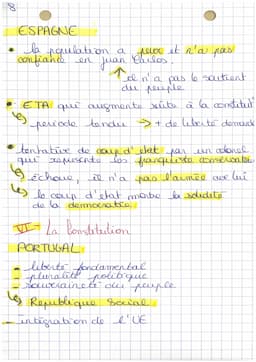 8
ESPAGNE
• la population a peur et n'a pas
confiance en Juan Carlos.
↑ il n'a pas le soutient
du peuple
• ETA qui augmente suite à la constitut°
↳ periode tendu → + de liberté demandé
• tentative de coup d'état par un colonel
qui represente les franquiste conservat
↳ Echoue, il n'a pas l'armée avec lui
↳ le coup d'état montre la solidité
de la democratie.
VI - La Constitution
PORTUGAL
- liberté fondamental
- pluralité politique
- souveraineté du peuple
↳ Republique Social
- intégration de l'UE